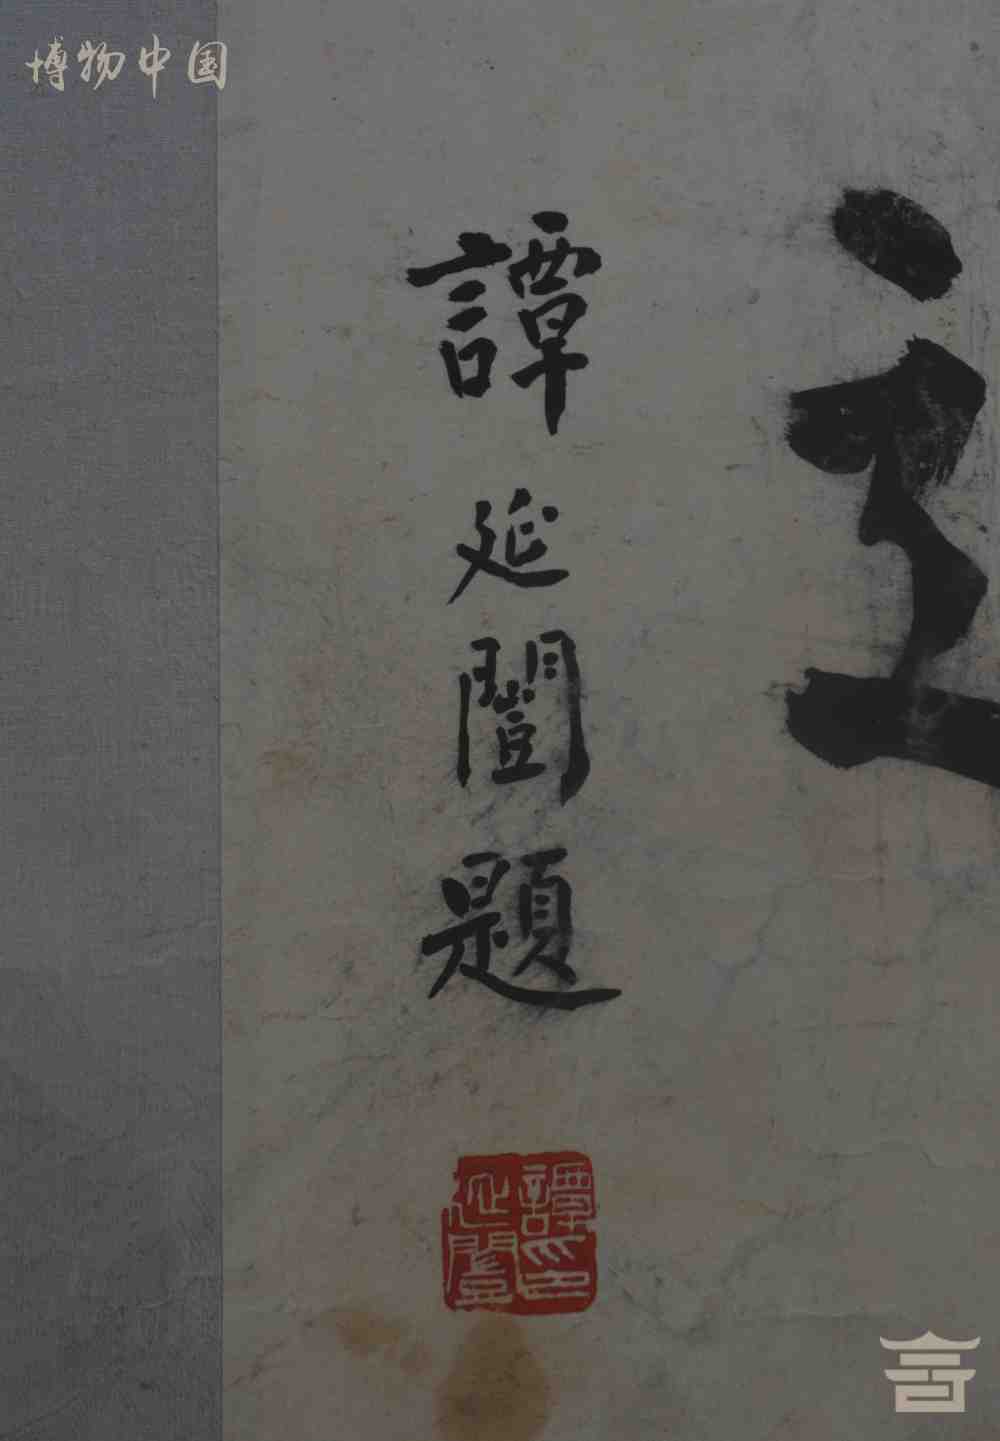 博物中国
譚延闓題
譚印
延闓